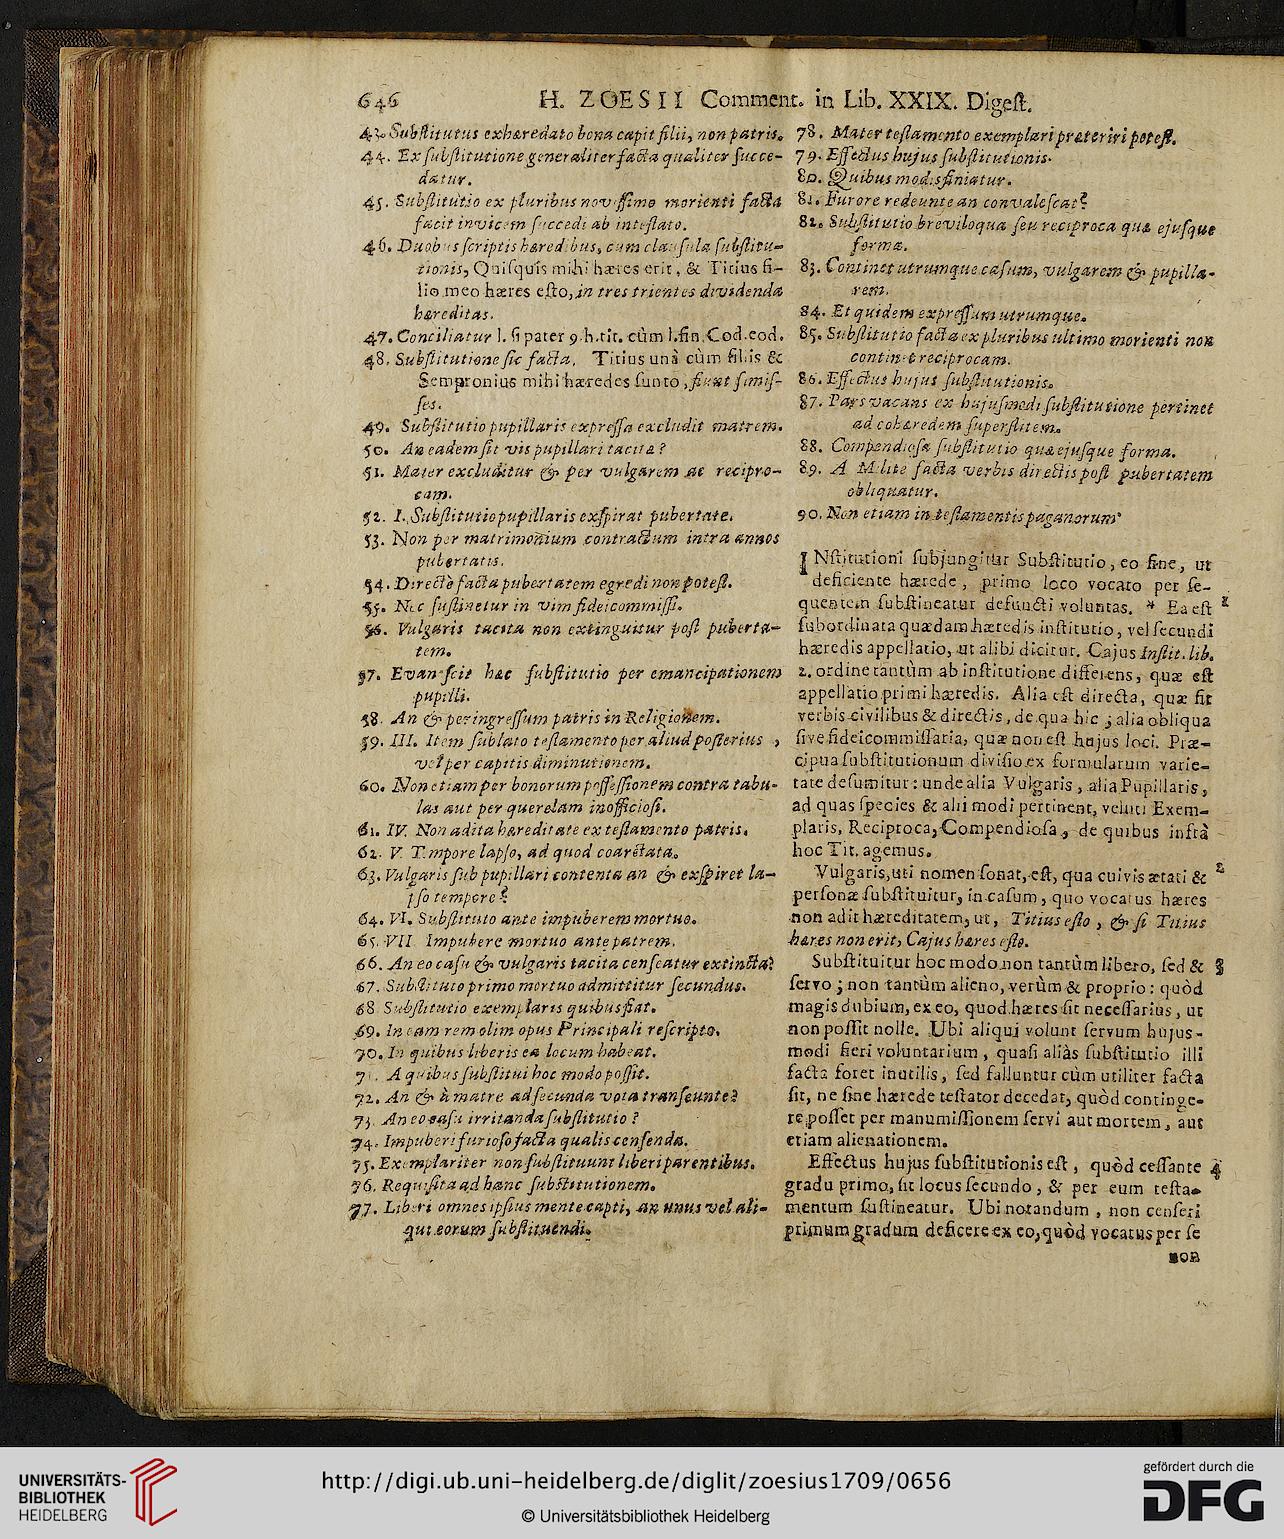 646 H. ZOESII Comment. in Lib. XXIX. Digeſt.
43. Subſtitutus exhæredato bona capit filii, non patris.
44. Ex ſubſtitutione generaliter facta qualiter ſucce-
datur.
45. Subſtitutio ex pluribus noviſſimo morienti facta
facit invicem ſuccedi ab inteſtato.
46. Duobus ſcriptis hæredibus, cum clauſula ſubſtitu-
tionis, Quiſquis mihi hæres erit, & Titius fi-
lio meo hæres eſto, in tres trientes dividenda
hæreditas.
47. Conciliatur l. ſi pater 9. h. tit. cùm l. fin. Cod. eod.
48. Subſtitutione ſic facta, Titius unà cùm filiis &
Sempronius mihi hæredes ſunto, fiunt ſimiſ-
ſes.
49. Subſtitutio pupillaris expreſſa excludit matrem.
50. An eadem ſit vis pupillari tacitæ?
51. Mater excluditur & per vulgarem ac recipro-
cam.
52. I. Subſtitutio pupillaris exſpirat pubertate.
53. Non per matrimonium contractum intra annos
pubertatis.
54. Directè facta pubertatem egredi non poteſt.
55. Nec ſuſtinetur in vim fideicommiſſi.
56. Vulgaris tacita non extinguitur poſt puberta-
tem.
57. Evaneſcit hæc ſubſtitutio per emancipationem
pupilli.
58. An & per ingreſſum patris in Religionem.
59. III. Item ſublato teſtamento per aliud poſterius,
vel per capitis diminutionem.
60. Non etiam per bonorum poſſeſſionem contra tabu-
las aut per querelam inofficioſi.
61. IV. Non adita hæreditate ex teſtamento patris.
62. V. Tempore lapſo, ad quod coarctata.
63. Vulgaris ſub pupillari contenta an & exſpiret la-
pſo tempore?
64. VI. Subſtituto ante impuberem mortuo.
65. VII Impubere mortuo ante patrem.
66. An eo caſu & vulgaris tacita cenſeatur extincta?
67. Subſtituto primo mortuo admittitur ſecundus.
68. Subſtitutio exemplaris quibus fiat.
69. In eam rem olim opus Principali reſcripto.
70. In quibus liberis ea locum habeat.
71. A quibus ſubſtitui hoc modo poſſit.
72. An & à matre ad ſecunda vota tranſeunte?
73. An eo caſu irritanda ſubſtitutio?
74. Impuberi furioſo facta qualis cenſenda.
75. Exemplariter non ſubſtituunt liberi parentibus.
76. Requiſita ad hanc ſubſtitutionem.
77. Liberi omnes ipſius mente capti, an unus vel ali-
qui eorum ſubſtituendi.
78. Mater teſtamento exemplari præteriri poteſt.
79. Effectus hujus ſubſtitutionis.
80. Quibus modis finiatur.
81. Furore redeunte an convaleſcat?
82. Subſtitutio breviloqua ſeu reciproca quæ ejuſque
forma.
83. Continet utrumque caſum, vulgarem & pupilla-
rem.
84. Et quidem expreſſum utrumque.
85. Subſtitutio facta ex pluribus ultimo morienti non
continet reciprocam.
86. Effectus hujus ſubſtitutionis.
87. Pars vacans ex hujuſmodi ſubſtitutione pertinet
ad cohæredem ſuperſtitem.
88. Compendioſa ſubſtitutio quæ ejuſque forma.
89. A Milite facta verbis directis poſt pubertatem
obliquatur.
90. Non etiam in teſtamentis paganorum.
INſtitutioni ſubjungitur Subſtitutio, eo fine, ut
deficiente hærede, primo loco vocato per ſe-
quentem ſubſtineatur defuncti voluntas. * Ea eſt 1
ſubordinata quædam hæredis inſtitutio, vel ſecundi
hæredis appellatio, ut alibi dicitur. Cajus Inſtit. lib.
2. ordine tantùm ab inſtitutione differens, quæ eſt
appellatio primi hæredis. Alia eſt directa, quæ fit
verbis civilibus & directis, de qua hic; alia obliqua
ſive fideicommiſſaria, quæ non eſt hujus loci. Præ-
cipua ſubſtitutionum diviſio ex formularum varie-
tate deſumitur: unde alia Vulgaris, alia Pupillaris,
ad quas ſpecies & alii modi pertinent, veluti Exem-
plaris, Reciproca, Compendioſa, de quibus infrà
hoc Tit. agemus.
Vulgaris, uti nomen ſonat, eſt, qua cuivis ætati & 2
perſonæ ſubſtituitur, in caſum, quo vocatus hæres
non adit hæreditatem, ut, Titius eſto, & ſi Titius
hæres non erit, Cajus hæres eſto.
Subſtituitur hoc modo non tantùm libero, ſed & 3
ſervo; non tantùm alieno, verùm & proprio: quòd
magis dubium, ex eo, quod hæres ſit neceſſarius, ut
non poſſit nolle. Ubi aliqui volunt ſervum hujus-
modi fieri voluntarium, quaſi aliàs ſubſtitutio illi
facta foret inutilis, ſed falluntur cùm utiliter facta
ſit, ne ſine hærede teſtator decedat, quòd continge-
re poſſet per manumiſſionem ſervi aut mortem, aut
etiam alienationem.
Effectus hujus ſubſtitutionis eſt, quòd ceſſante 4
gradu primo, ſit locus ſecundo, & per eum teſta-
mentum ſuſtineatur. Ubi notandum, non cenſeri
primum gradum deficere ex eo, quòd vocatus per ſe
non
UNIVERSITÄTS-
BIBLIOTHEK
HEIDELBERG
http://digi.ub.uni-heidelberg.de/diglit/zoesius1709/0656
© Universitätsbibliothek Heidelberg
gefördert durch die
DFG